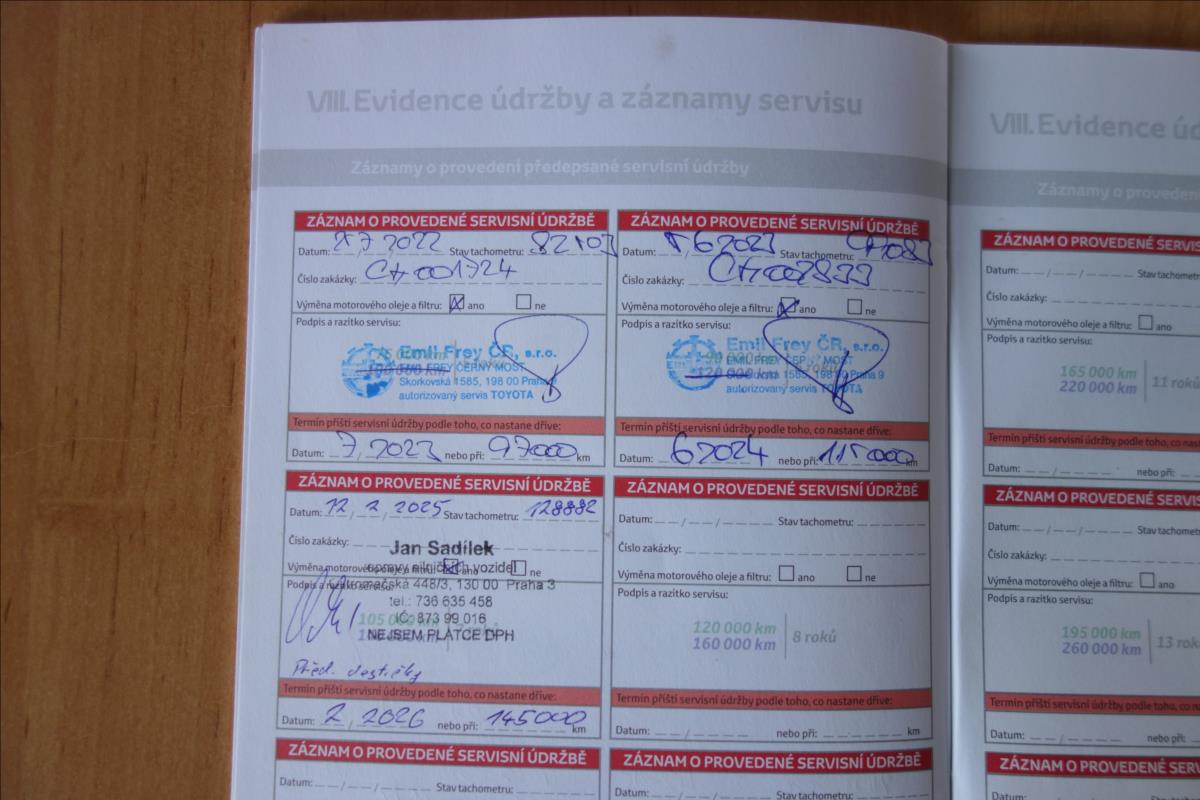 VIII. Evidence údržby a záznamy servisu
Záznamy o provedení předepsané servisní údržby
ZÁZNAM O PROVEDENÉ SERVISNÍ ÚDRŽBĚ
Datum: 7 2022 Stav tachometru: 82103
Číslo zakázky: CH001724
Výměna motorového oleje a filtru: ano ne
Podpis a razítko servisu:
Emil Frey ČR, s.r.o.
EMIL FREY ČERNÝ MOST
Skorkovská 1585, 198 00 Praha 9
autorizovaný servis TOYOTA
Termín příští servisní údržby podle toho, co nastane dříve:
Datum: 7 2023 nebo při: 97000 km
ZÁZNAM O PROVEDENÉ SERVISNÍ ÚDRŽBĚ
Datum: 6 2023 Stav tachometru:
Číslo zakázky:
Výměna motorového oleje a filtru: ano ne
Podpis a razítko servisu:
Emil Frey ČR, s.r.o.
EMIL FREY ČERNÝ MOST
90 000 km
120 000 km
1585, 198 00 Praha 9
autorizovaný servis TOYOTA
Termín příští servisní údržby podle toho, co nastane dříve:
Datum: 6 2024 nebo při: 115000 km
ZÁZNAM O PROVEDENÉ SERVISNÍ ÚDRŽBĚ
Datum: 12 2 2025 Stav tachometru: 128882
Číslo zakázky:
Jan Sadílek
Výměna motorového oleje a filtru: ano ne
opravy silničních vozidel
Podpis a razítko servisu:
448/3, 130 00 Praha 3
tel.: 736 635 458
IČ: 873 99 016
105 000 km
NEJSEM PLÁTCE DPH
Před. destičky
Termín příští servisní údržby podle toho, co nastane dříve:
Datum: 2 2026 nebo při: 145000 km
ZÁZNAM O PROVEDENÉ SERVISNÍ ÚDRŽBĚ
Datum: Stav tachometru:
Číslo zakázky:
Výměna motorového oleje a filtru: ano ne
Podpis a razítko servisu:
120 000 km
160 000 km
8 roků
Termín příští servisní údržby podle toho, co nastane dříve:
Datum: nebo při: km
ZÁZNAM O PROVEDENÉ SERVISNÍ ÚDRŽBĚ
Datum: Stav tachometru:
ZÁZNAM O PROVEDENÉ SERVISNÍ ÚDRŽBĚ
Datum: Stav tachometru:
VIII. Evidence úd
Záznamy o proveden
ZÁZNAM O PROVEDENÉ SERVIS
Datum: Stav tachomet
Číslo zakázky:
Výměna motorového oleje a filtru: ano
Podpis a razítko servisu:
165 000 km
220 000 km
11 roků
Termín příští servisní údržby podle toho, co nas
Datum: nebo při:
ZÁZNAM O PROVEDENÉ SERVIS
Datum: Stav tachomet
Číslo zakázky:
Výměna motorového oleje a filtru: ano
Podpis a razítko servisu:
195 000 km
260 000 km
13 rok
Termín příští servisní údržby podle toho, co nas
Datum: nebo při:
ZÁZNAM O PROVEDENÉ SERVI
Datum: Stav tachom